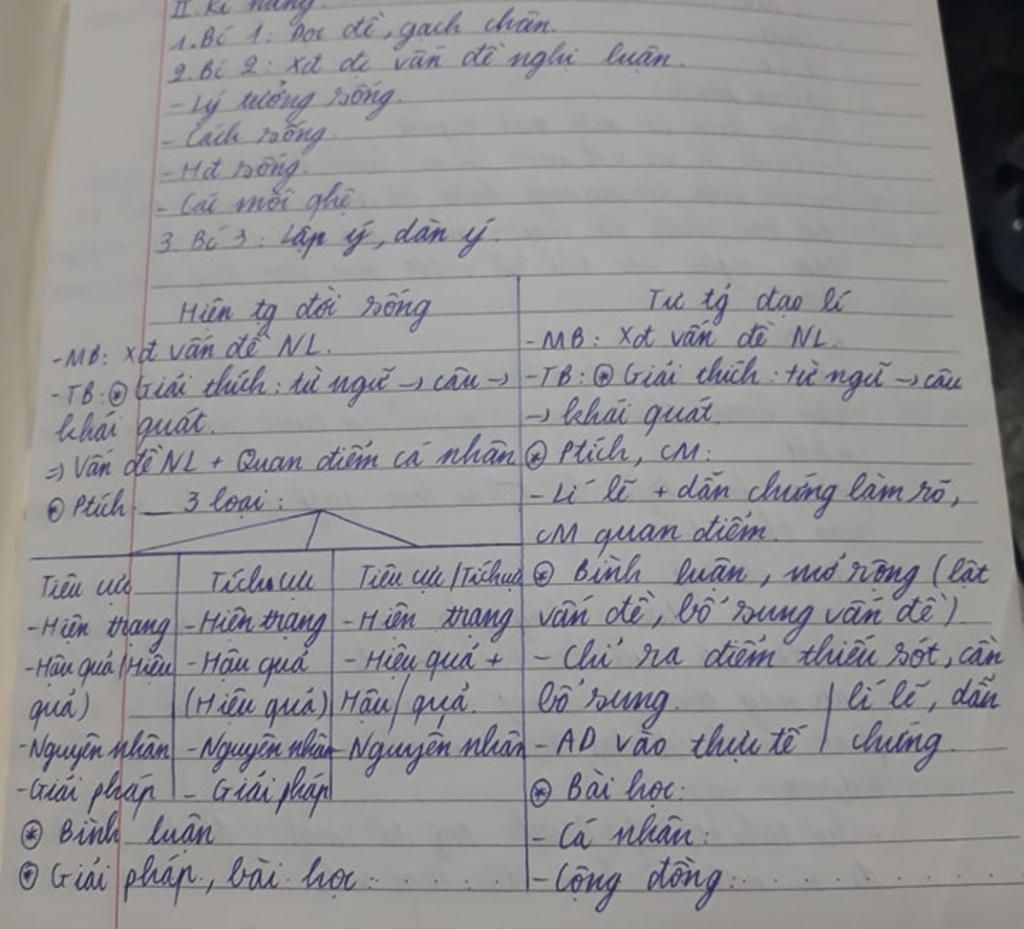 II. Kĩ năng.
1. Bc 1: Đọc đề, gạch chân.
2. Bc 2: Xđ đc vấn đề nghị luận.
- Lý tưởng sống.
- Cách sống.
- Mđ sống.
- Các mối qhệ.
3. Bc 3: Lập ý, dàn ý.
Hiện tg đời sống
- MB: Xđ vấn đề NL.
- TB: ⊛ Giải thích: từ ngữ → câu →
khái quát.
⇒ Vấn đề NL + Quan điểm cá nhân
⊛ Ptích 3 loại:
Tiêu cực
- Hiện trạng
- Hậu quả (Hiệu
quả)
- Nguyên nhân
- Giải pháp
Tích cực
- Hiện trạng
- Hậu quả
(Hiệu quả)
- Nguyên nhân
- Giải pháp
Tiêu cực/Tích cực
- Hiện trạng
- Hiệu quả +
Hậu quả.
- Nguyên nhân
⊛ Bình luận
⊛ Giải pháp, bài học: . . . . .
Tư tg đạo lí
- MB: Xđ vấn đề NL.
- TB: ⊛ Giải thích: từ ngữ → câu
→ khái quát.
⊛ Ptích, CM:
- Lí lẽ + dẫn chứng làm rõ,
CM quan điểm.
⊛ Bình luận, mở rộng (lật
vấn đề, bổ sung vấn đề)
- Chỉ ra điểm thiếu sót, cần
bổ sung. | lí lẽ, dẫn
- AD vào thực tế | chứng.
⊛ Bài học:
- Cá nhân:
- Cộng đồng: . . . . . . .